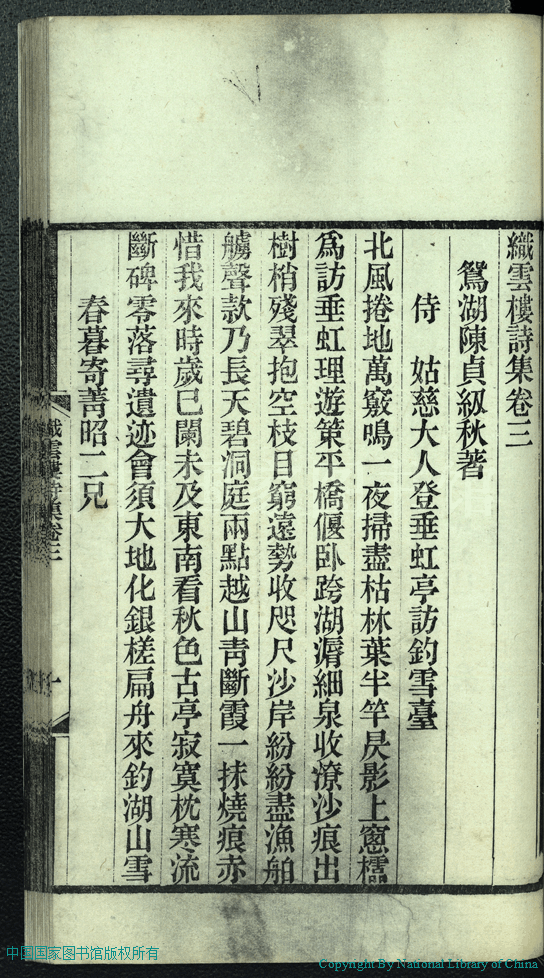 織雲樓詩集卷三
鴛湖陳貞紉秋著
侍　姑慈大人登垂虹亭訪釣雪臺
北風捲地萬竅鳴一夜掃盡枯林葉半竿昃影上窻櫺
爲訪垂虹理遊策平橋偃臥跨湖漘細泉收潦沙痕出
樹梢殘翠抱空枝目窮遠勢收咫尺沙岸紛紛盡漁舶
艣聲欸乃長天碧洞庭兩點越山靑斷霞一抹燒痕赤
惜我來時歲已闌未及東南看秋色古亭寂寞枕寒流
斷碑零落尋遺迹會須大地化銀槎扁舟來釣湖山雪
春暮寄菁昭二兄
織雲樓詩集卷三
一
中国国家图书馆版权所有
Copyright By National Library of China